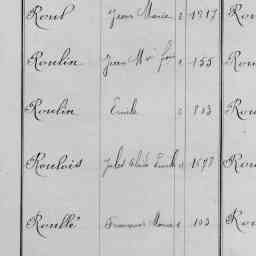 Roul Jean Marie 2 1917 Rou
Roulin Jean Mie fois 2 155 Rou
Roulin Emile 2 803 Rou
Roulois Jules Emile 1678 Rou
Roullé François Marie 2 103 Rou